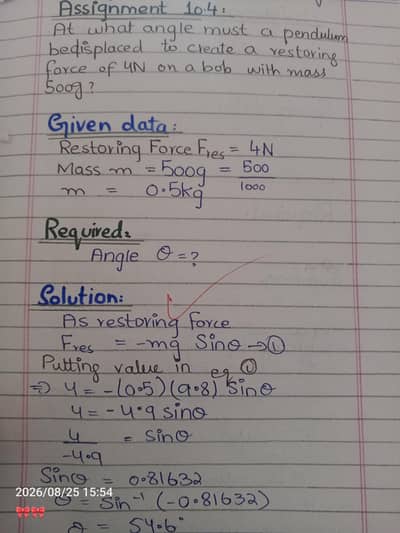 Assignment 10.4:
At what angle must a pendulum
be displaced to create a restoring
force of 4N on a bob with mass
500g?
Given data:
Restoring Force Fres = 4N
Mass m = 500g = 500
1000
m = 0.5kg
Required:
Angle θ = ?
Solution:
As restoring force
Fres = -mg Sinθ → ①
Putting value in eq ①
⇒ 4 = -(0.5)(9.8) Sinθ
4 = -4.9 sinθ
4 = sinθ
-4.9
Sinθ = 0.81632
θ = Sin⁻¹ (-0.81632)
θ = 54.6°
2026/08/25 15:54